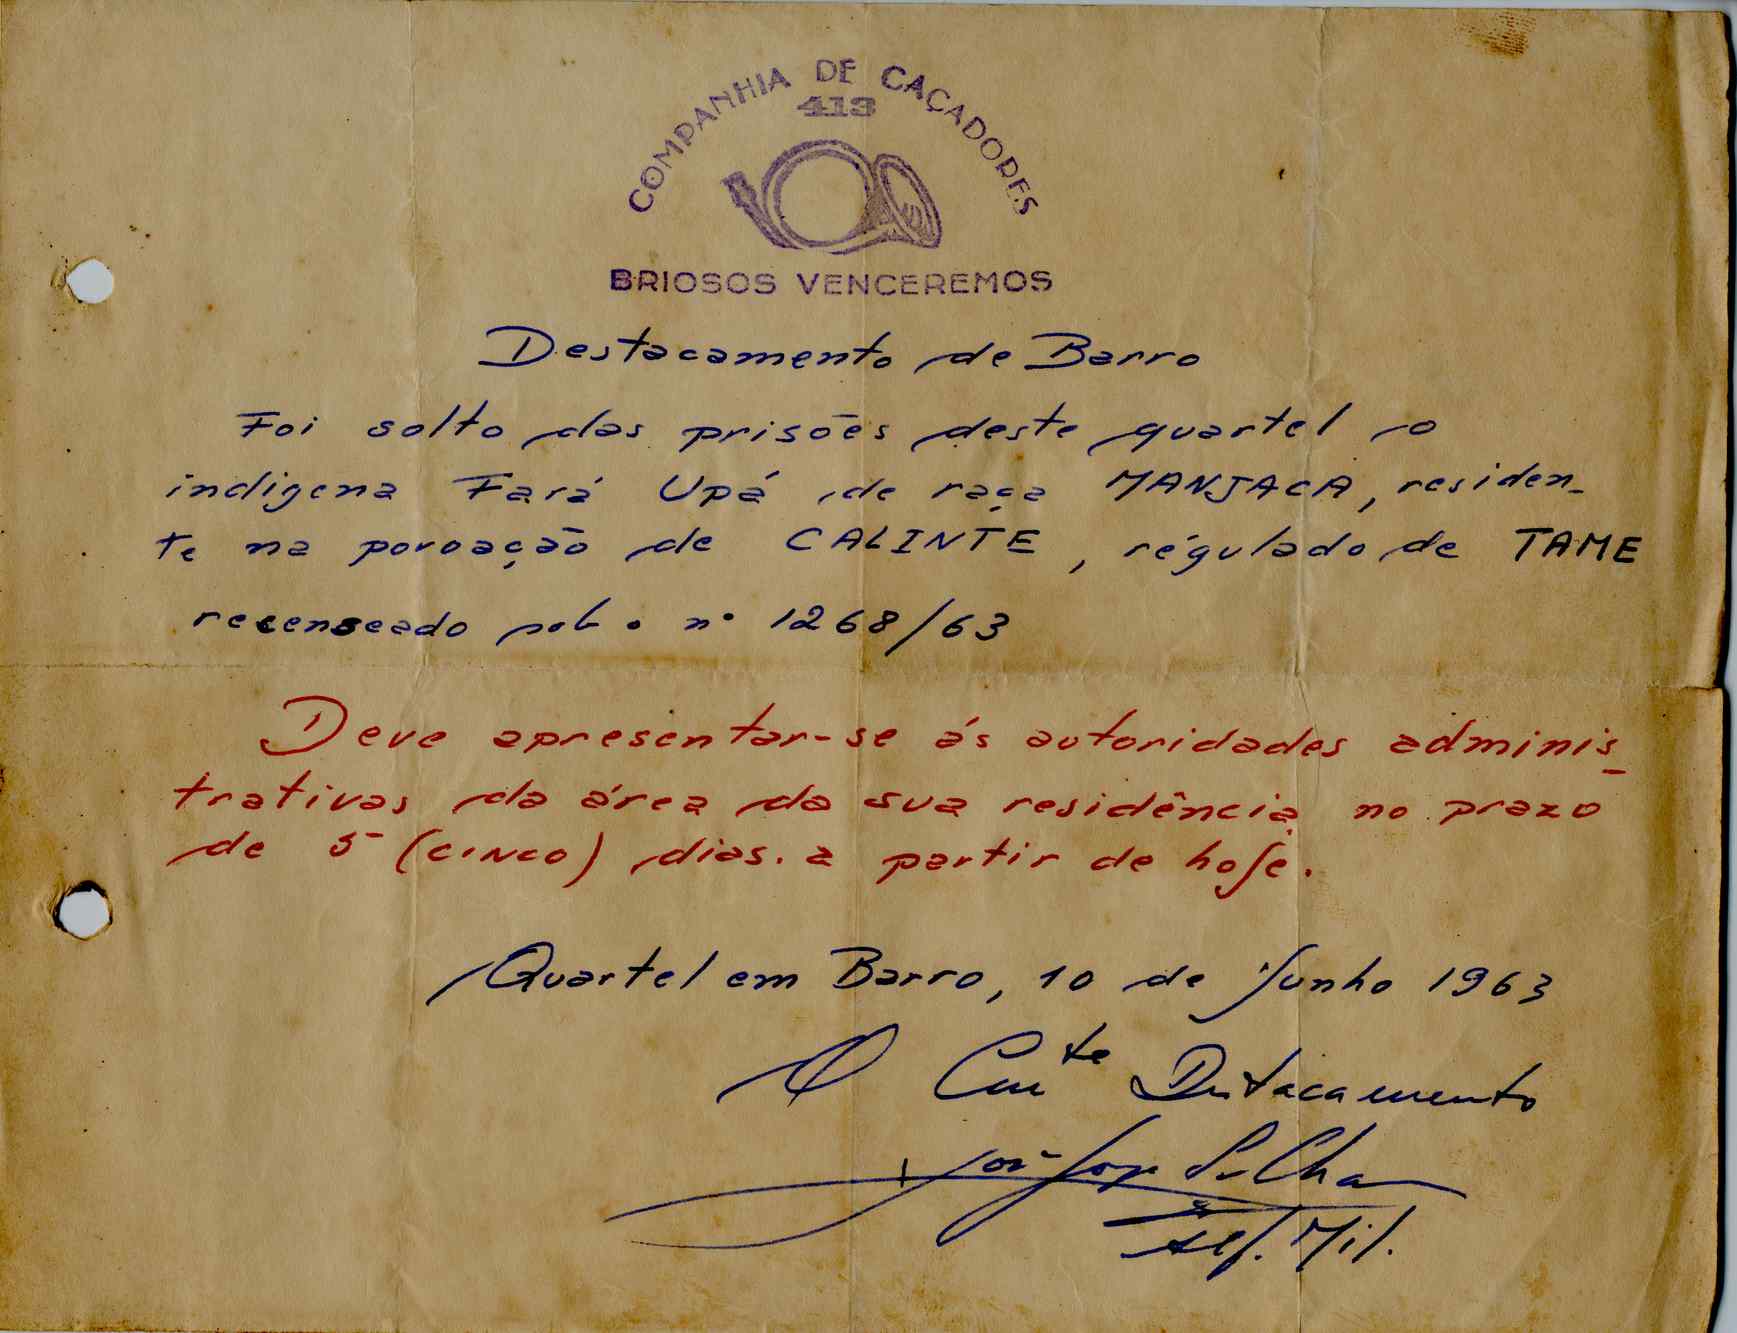 COMPANHIA DE CAÇADORES
413
BRIOSOS VENCEREMOS
Destacamento de Barro
Foi solto das prisões deste quartel o
indigena Fará Upá de raça MANJACA, residen-
te na povoação de CALINTE, régulado de TAME
recenseado sob o nº 1268/63
Deve apresentar-se ás autoridades adminis-
trativas da área da sua residência no prazo
de 5 (CINCO) dias. a partir de hoje.
Quartel em Barro, 10 de Junho 1963
O Cmte Destacamento
Alf. Mil.